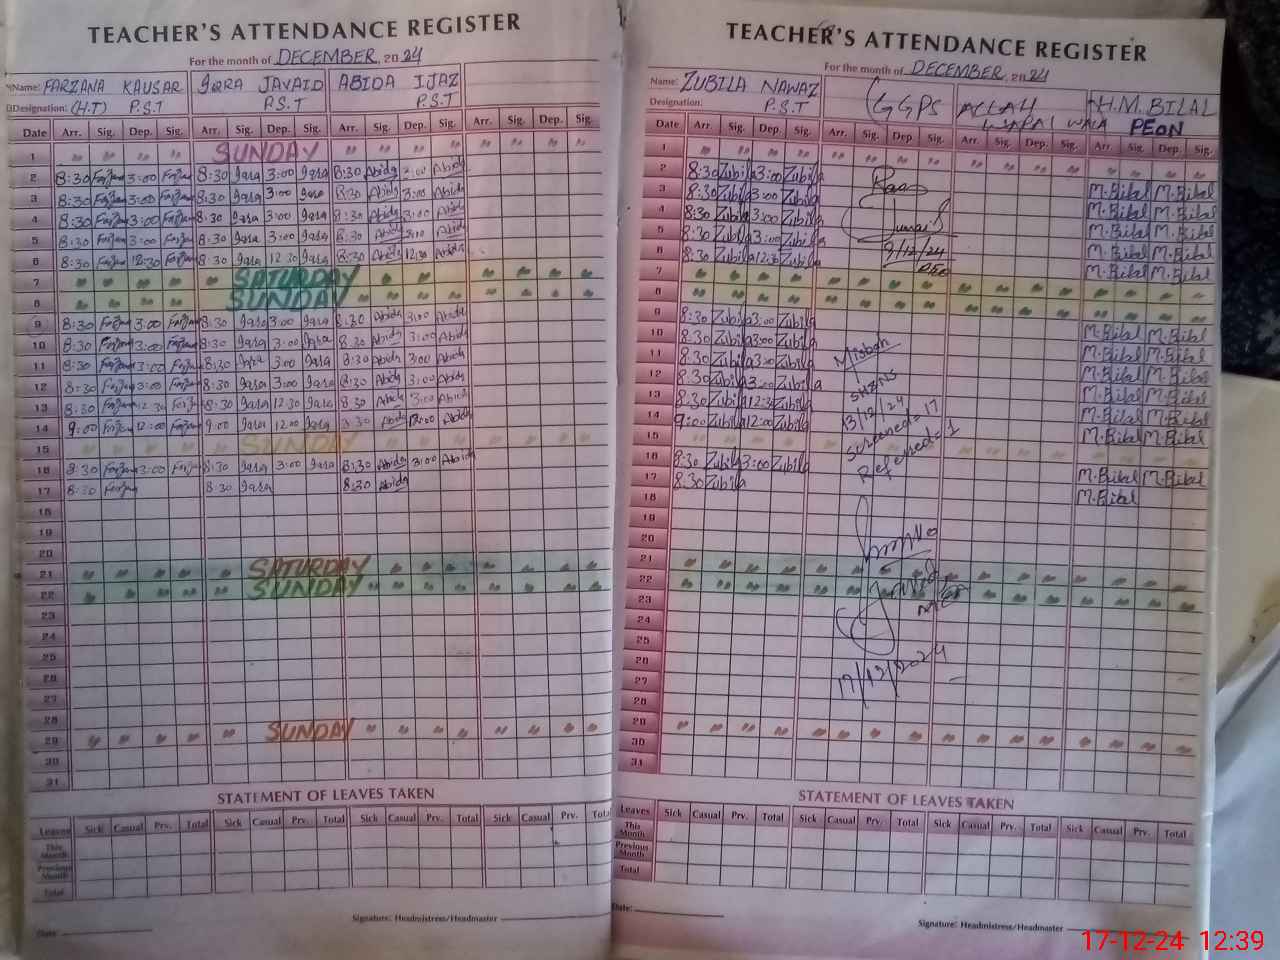 TEACHER'S ATTENDANCE REGISTER
For the month of DECEMBER, 2024
Name: FARZANA KAUSAR IQRA JAVAID ABIDA IJAZ
Designation: (H.T) P.S.T P.S.T P.S.T
Date Arr. Sig. Dep. Sig. Arr. Sig. Dep. Sig. Arr. Sig. Dep. Sig. Arr. Sig. Dep. Sig.
1 " " " " SUNDAY " " " " " " "
2 8:30 Farzana 3:00 Farzana 8:30 Iqra 3:00 Iqra 8:30 Abida 3:00 Abida
3 8:30 Farzana 3:00 Farzana 8:30 Iqra 3:00 Iqra 8:30 Abida 3:00 Abida
4 8:30 Farzana 3:00 Farzana 8:30 Iqra 3:00 Iqra 8:30 Abida 3:00 Abida
5 8:30 Farzana 3:00 Farzana 8:30 Iqra 3:00 Iqra 8:30 Abida 3:00 Abida
6 8:30 Farzana 12:30 Farzana 8:30 Iqra 12:30 Iqra 8:30 Abida 12:30 Abida
7 " " " " " SATURDAY " " " " " "
8 " " " " " SUNDAY " " " " " " "
9 8:30 Farzana 3:00 Farzana 8:30 Iqra 3:00 Iqra 8:30 Abida 3:00 Abida
10 8:30 Farzana 3:00 Farzana 8:30 Iqra 3:00 Iqra 8:30 Abida 3:00 Abida
11 8:30 Farzana 3:00 Farzana 8:30 Iqra 3:00 Iqra 8:30 Abida 3:00 Abida
12 8:30 Farzana 3:00 Farzana 8:30 Iqra 3:00 Iqra 8:30 Abida 3:00 Abida
13 8:30 Farzana 12:30 Farzana 8:30 Iqra 12:30 Iqra 8:30 Abida 3:00 Abida
14 9:00 Farzana 12:00 Farzana 9:00 Iqra 12:00 Iqra Abida 12:00 Abida
15 " " " " " SUNDAY " " " " " " "
16 8:30 Farzana 3:00 Farzana 8:30 Iqra 3:00 Iqra 8:30 Abida 3:00 Abida
17 8:30 Farzana 8:30 Iqra 8:30 Abida
18
19
20
21 " " " " " SATURDAY " " " " " " "
22 " " " " " SUNDAY " " " " " " " "
23
24
25
26
27
28
29 " " " " " SUNDAY " " " " " " " "
30
31
STATEMENT OF LEAVES TAKEN
Leaves Sick Casual Prv. Total Sick Casual Prv. Total Sick Casual Prv. Total Sick Casual Prv. Total
This Month
Previous Month
Total
Signature: Headmistress/Headmaster
Date:
TEACHER'S ATTENDANCE REGISTER
For the month of DECEMBER, 2024
Name: ZUBILA NAWAZ GGPS ALLAH WALA H.M.BILAL
Designation: P.S.T PEON
Date Arr. Sig. Dep. Sig. Arr. Sig. Dep. Sig. Arr. Sig. Dep. Sig. Arr. Sig. Dep. Sig.
1 " " " " " " " " " " " " " " "
2 8:30 Zubila 3:00 Zubila M.Bilal M.Bilal
3 8:30 Zubila 3:00 Zubila M.Bilal M.Bilal
4 8:30 Zubila 3:00 Zubila M.Bilal M.Bilal
5 8:30 Zubila 3:00 Zubila M.Bilal M.Bilal
6 8:30 Zubila 12:30 Zubila 9/12/24 M.Bilal M.Bilal
7 " " " " " " " " " " " " " " " "
8 " " " " " " " " " " " " " " "
9 8:30 Zubila 3:00 Zubila M.Bilal M.Bilal
10 8:30 Zubila 3:00 Zubila M.Bilal M.Bilal
11 8:30 Zubila 3:00 Zubila Misbah M.Bilal M.Bilal
12 8:30 Zubila 3:00 Zubila SH&NS M.Bilal M.Bilal
13 8:30 Zubila 12:30 Zubila 13/12/24 M.Bilal M.Bilal
14 9:00 Zubila 12:00 Zubila Screened=17 M.Bilal M.Bilal
15 " " " " Refered=1
16 8:30 Zubila 3:00 Zubila M.Bilal M.Bilal
17 8:30 Zubila M.Bilal
18
19
20
21 " " " " " " " " " " " " " " "
22 " " " " " " " " " " " " " " "
23
24
25
26
27
17/12/2024
28
29 " " " " " " " " " " " " " " "
30
31
STATEMENT OF LEAVES TAKEN
Leaves Sick Casual Prv. Total Sick Casual Prv. Total Sick Casual Prv. Total Sick Casual Prv. Total
This Month
Previous Month
Total
Date:
Signature: Headmistress/Headmaster
17-12-24 12:39